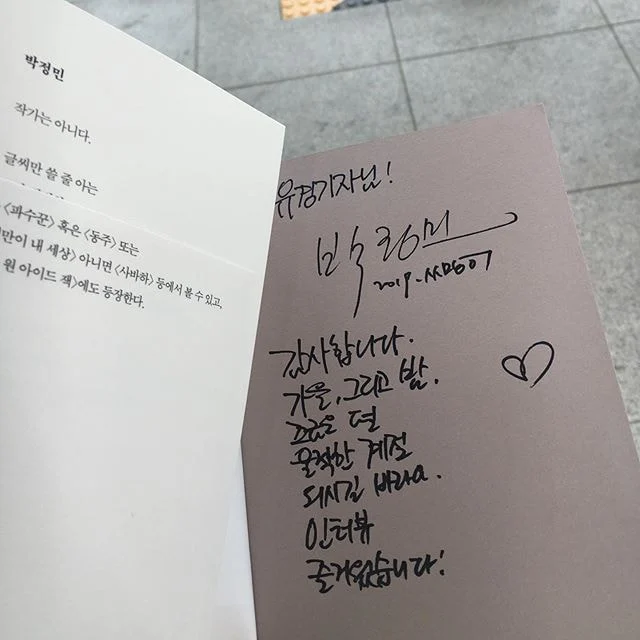 박정민
작가는 아니다.
글씨만 쓸 줄 아는
〈파수꾼〉 혹은 〈동주〉 또는
만이 내 세상〉 아니면 〈사바하〉 등에서 볼 수 있고,
원 아이드 잭〉에도 등장한다.
유경기자님!
박정민
2019.
감사합니다.
가을, 그리고 밤.
조금은 덜
울적한 계절
되시길 바라요.
인터뷰
즐거웠습니다!